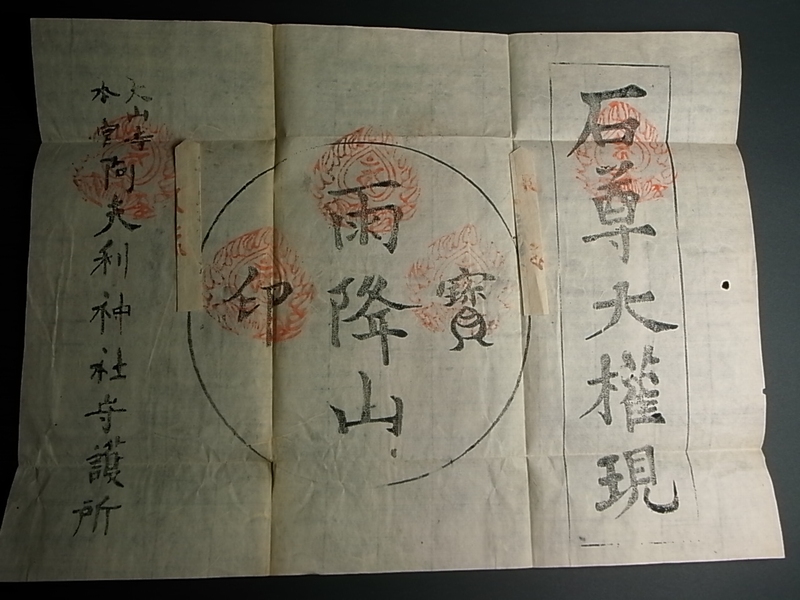 石尊大權現
寶
雨降山
印
大山寺
本宮阿夫利神社守護所